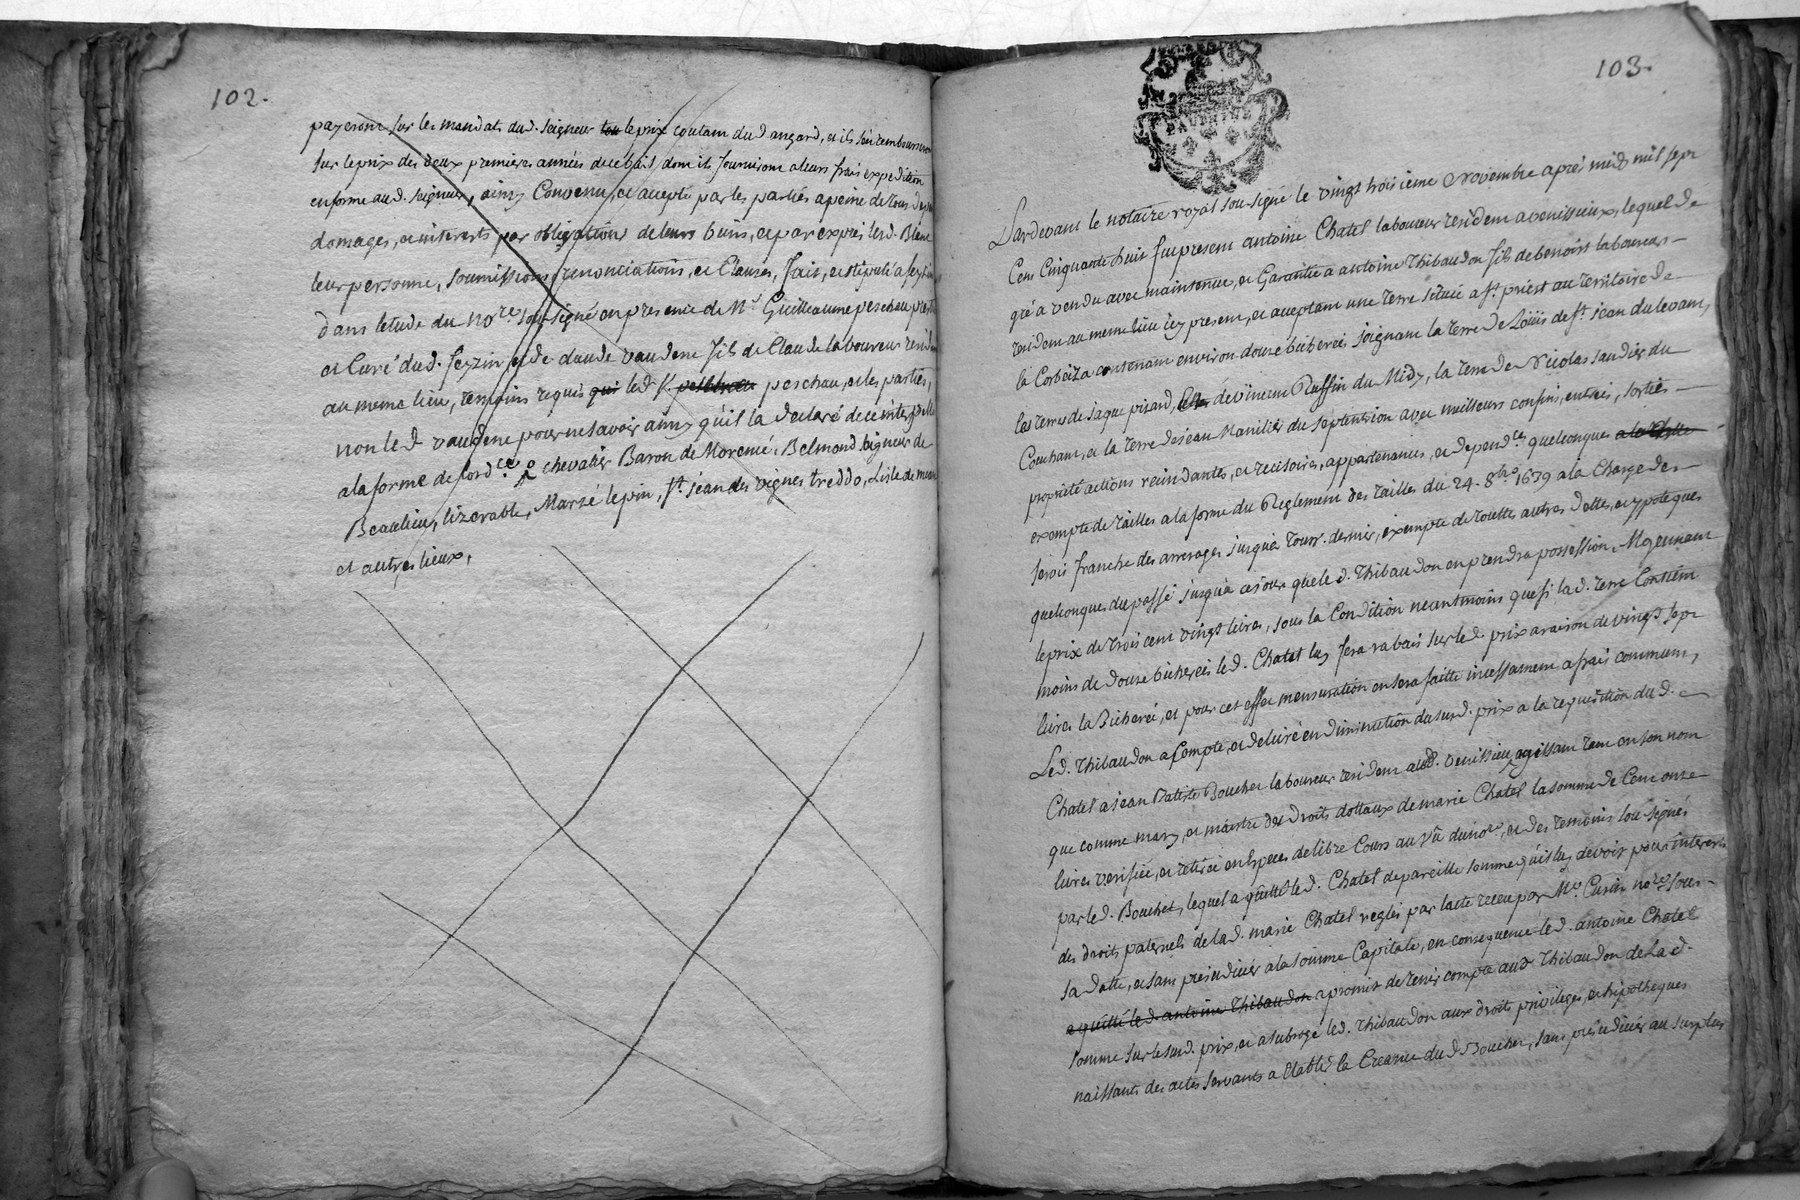 102.
payeront sur les mandats dud. seigneur tou le prix coutant dud angard, et ils s'en rembourseront
sur le prix des deux premieres années dece bail dont ils fourniront aleurs frais expedition
enforme aud. seigneur, ainsy Convenu, et accepté par les parties apeine detous depens
domages, et interests par obligations de leurs biens, et par exprès lesd. Blanc
leur personne, soumissions, renonciations, et Clauses, fait, et stipulé a feyzin
dans létude du nore. sousigné en presence de Mr. Guilleaume peschau pretre
et Curé dud. feyzin, et de claude vaudene fils de Claude laboureur resident
au meme lieu, temoins requis qui led sr. peschau, et les parties,
non led vaudene pour ne savoir ainsy qu'il la declaré de ce interpellé
ala forme de l'ordce. chevalier Baron de Morenié, Belmond seigneur de
Beaulieu, lizerable, Marzé lepin, st. jean des vignes treddo, Lisle de
et autres lieux,
103.
Pardevant le notaire royal sousigné le vingt troisieme Novembre après midy mil sept
Cens Cinquante huit fut present antoine Chatel laboureur resident avenissieux, lequel de
gré a vendu avec maintenue, et Garantie a antoine Thibaudon fils de benoist laboureur
resident au meme lieu icy present, et acceptant une Terre située a st. priest au territoire de
la Corbeiza contenant environ douze bicherées joignant la terre de Loüis de st. jean du levant,
les terres de jaque pizard, de vincent Ruffin du Midy, la terre de Nicolas saudier du
Couchant, et la terre de jean Manilier du septentrion avec meilleurs confins, entrées, sorties
propriété actions rescindantes, et rescisoires, appartenances, et dependces. quelconques
exempte de tailles a la forme du Reglement des tailles du 24. 8bre 1639 ala Charge des
servis franche des arrerages jusqu'a Touss. dernier, exempte de touttes autres dettes, et ypoteques
quelconques du passé jusqu'a ce jour que led. Thibaudon en prendra possession, Moyennant
le prix de trois cent vingt livres, sous la Condition neantmoins que si lad. terre Contient
moins de douze bicherées led. Chatel luy fera rabais sur led. prix a raison de vingt sept
livres la Bicherée, et pour cet effet mensuration en sera faitte incessament a frais communs,
Led. Thibaudon a Compté, et delivré en diminution dususd. prix a la requisition dud.
Chatel a jean Batiste Bouchet laboureur resident aud. venissieux agissant tant en son nom
que comme mary, et maistre des droits dottaux de marie Chatel la somme de Cent onze
livres verifiée, et retirée en Especes de libre Cours au vû dunore., et des temoins sousignés
par led. Bouchet, lequel a quitté led. Chatel de pareille somme qu'il luy devoit pour interests
des droits paternels de lad. marie Chatel reglés par lacte receu par Me. Curin nore. sous
sa datte, et sans prejudicier ala somme Capitale, en consequence led. antoine Chatel
a quitté led. antoine Thibaudon a promit de tenir compte aud Thibaudon de Lad.
somme sur lesusd. prix, et a subrogé led. Thibaudon aux droits privileges, et hipotheques
naissants des actes servants a Etablir la Creance dud Bouchet, sans prejudicier au surplus